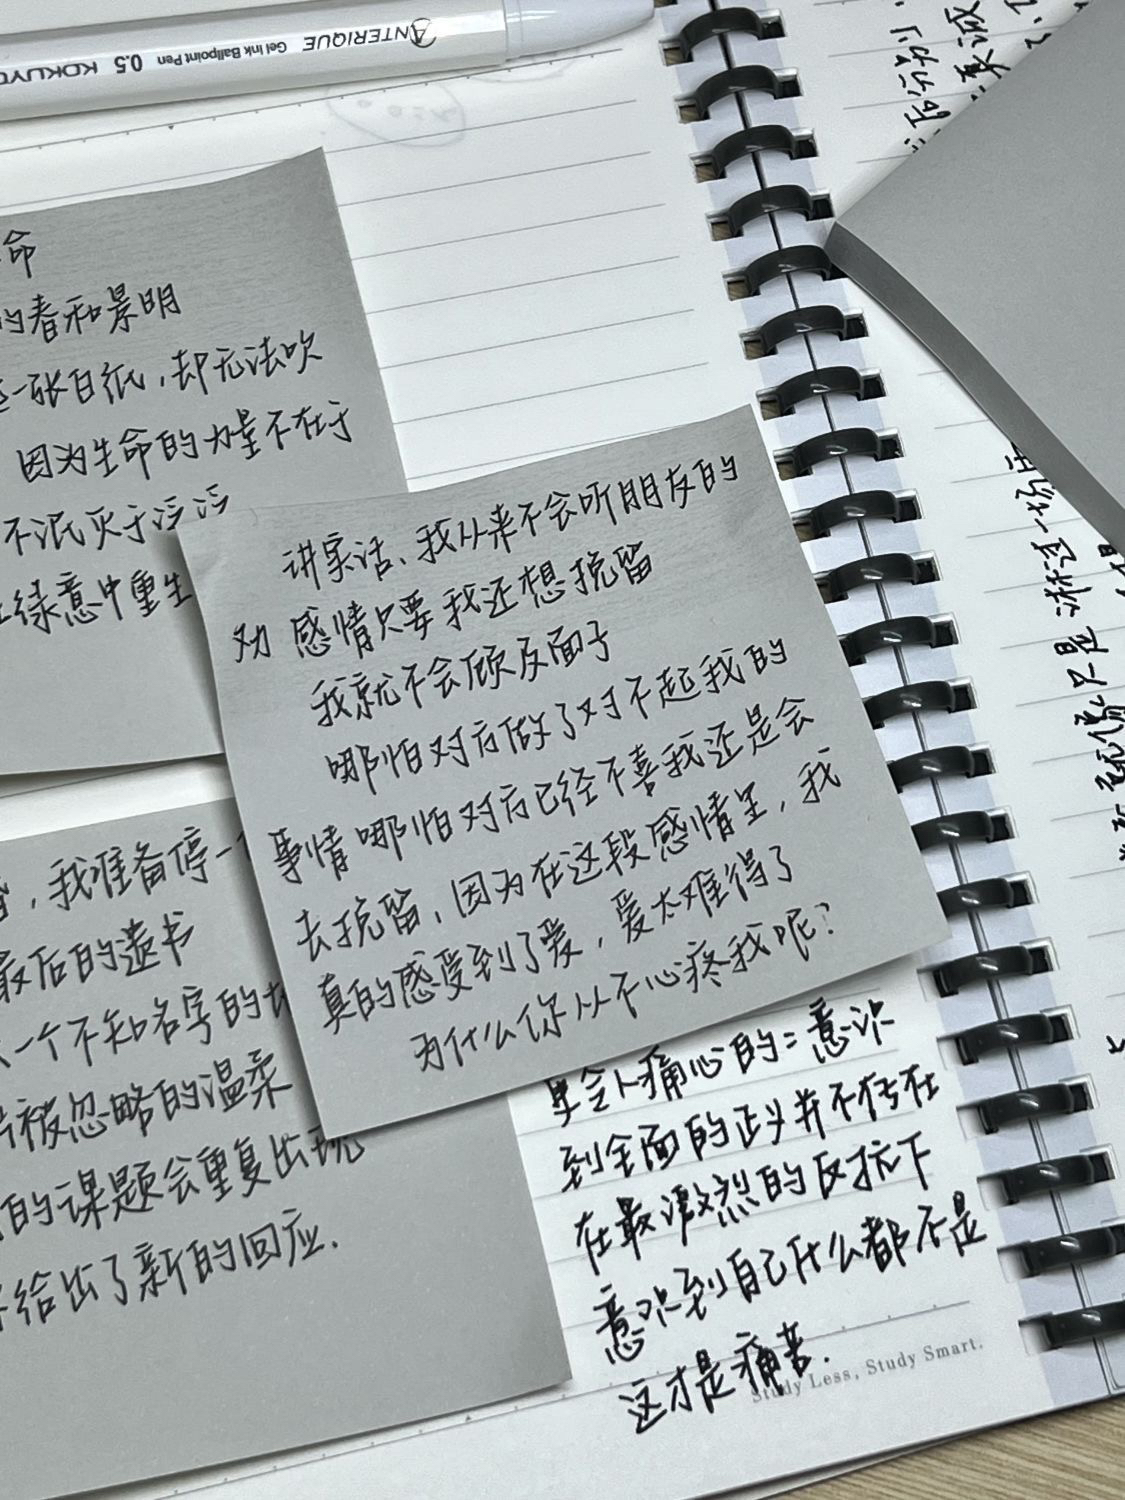 KOKUYO 0.5 Gel Ink Ballpoint Pen ANTERIQUE
命
的春和景明
一张白纸，却无法吹
因为生命的力量不在于
不泯灭于
绿意中重生
讲实话、我从来不会听朋友的
劝 感情只要我还想挽留
我就不会顾及面子
哪怕对方做了对不起我的
事情哪怕对方已经不喜我还是会
去挽留，因为在这段感情里，我
真的感受到了爱，爱太难得了
为什么你从不心疼我呢？
，我准备停一
最后的遗书
一个不知名字的
被忽略的温柔
的课题会重复出现
给出了新的回应.
更令人痛心的：意识
到全面的正义并不存在
在最激烈的反抗下
意识到自己什么都不是
这才是痛苦.
Study Less, Study Smart.
只是淋过一场